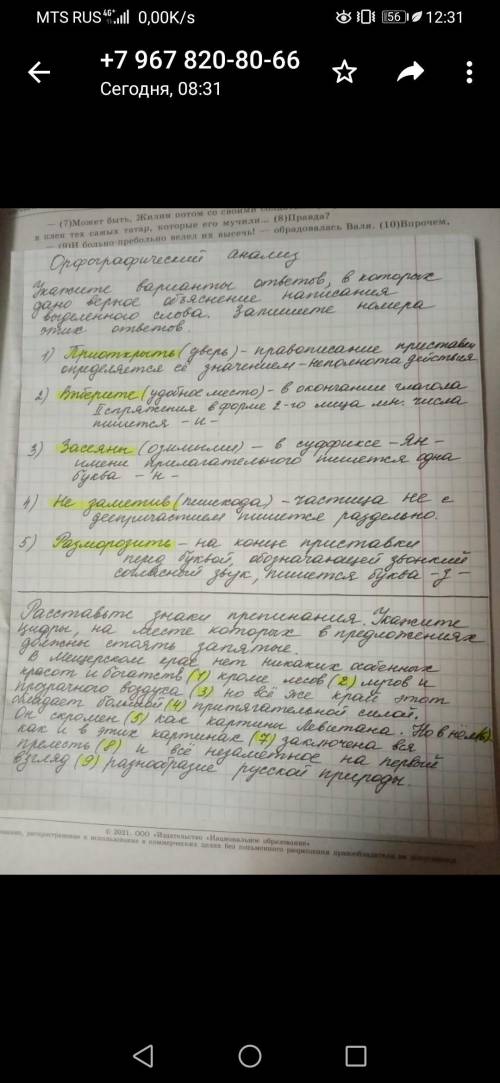 MTS RUS 4G+ 0,00K/s 56 12:31
+7 967 820-80-66
Сегодня, 08:31
— (7)Может быть, Жилин потом со своими
в плен тех самых татар, которые его мучили... (8)Правда?
— (9)И больно-пребольно велел их высечь! — обрадовалась Валя. (10)Впрочем,
Орфографический анализ
Укажите варианты ответов, в которых
дано верное объяснение написания
выделенного слова. Запишите номера
этих ответов.
1) Приоткрыть (дверь) - правописание приставки
определяется её значением - неполнота действия
2) Выберите (удобное место) - в окончании глагола
II спряжения в форме 2-го лица мн. числа
пишется -и-
3) Засеяны (озимыми) - в суффиксе -ЯН-
имени прилагательного пишется одна
буква -н-
4) Не заметив (пешехода) - частица не с
деепричастием пишется раздельно.
5) Разморозить - на конце приставки
перед буквой, обозначающей звонкий
согласный звук, пишется буква -з-
Расставьте знаки препинания. Укажите
цифры, на месте которых в предложениях
должны стоять запятые.
В Мещерском крае нет никаких особенных
красот и богатств (1) кроме лесов (2) лугов и
прозрачного воздуха (3) но всё же край этот
обладает большой (4) притягательной силой.
Он скромен (5) как картины Левитана. Но в нём (6)
как и в этих картинах (7) заключена вся
прелесть (8) и всё незаметное на первый
взгляд (9) разнообразие русской природы.
© 2021. ООО «Издательство «Национальное образование»
распространение и использование в коммерческих целях без письменного разрешения правообладателя не допускается